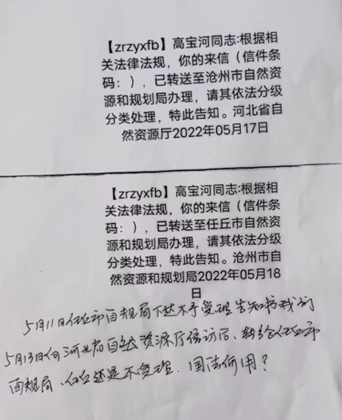 【zrzyxfb】高宝河同志:根据相
关法律法规，你的来信（信件条
码：），已转送至沧州市自然资
源和规划局办理，请其依法分级
分类处理，特此告知。河北省自
然资源厅2022年05月17日
【zrzyxfb】高宝河同志:根据相
关法律法规，你的来信（信件条
码：），已转送至任丘市自然资
源和规划局办理，请其依法分级
分类处理，特此告知。沧州市自
然资源和规划局2022年05月18
日
5月11日任丘市自规局下达不予受理告知书我们
5月13日向河北省自然资源厅信访局，转给任丘市
自规局，任丘还是不受理，国法何用？